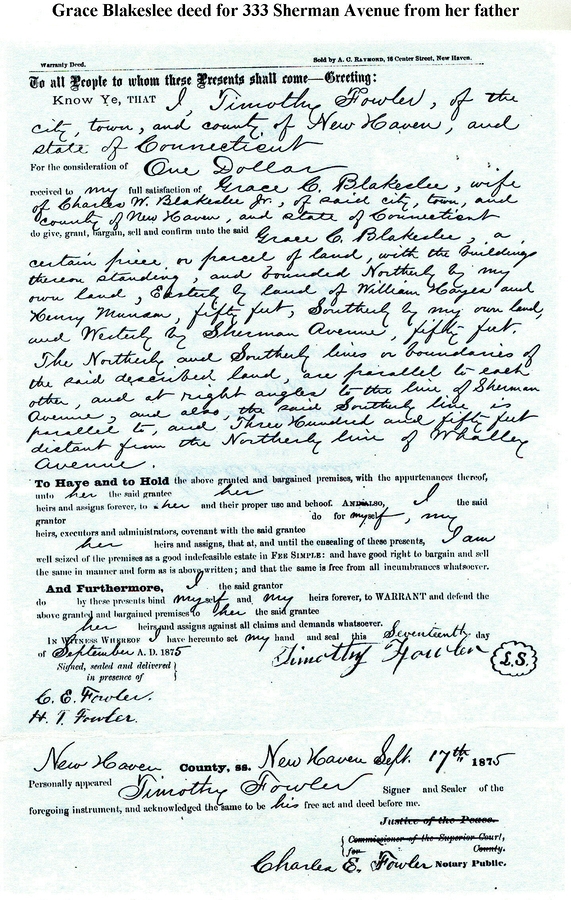 Grace Blakeslee deed for 333 Sherman Avenue from her father
Warranty Deed. Sold by A. C. RAYMOND, 16 Center Street, New Haven.
To all People to whom these Presents shall come—Greeting:
KNOW YE, THAT I, Timothy Fowler, of the
city, town, and county of New Haven, and
state of Connecticut
For the consideration of One Dollar
received to my full satisfaction of Grace C. Blakeslee, wife
of Charles W. Blakeslee Jr., of said city, town, and
county of New Haven, and state of Connecticut
do give, grant, bargain, sell and confirm unto the said Grace C. Blakeslee, a
certain piece, or parcel of land, with the buildings
thereon standing, and bounded Northerly by my
own land, Easterly by land of William Hayes and
Henry Munson, fifty feet, Southerly by my own land,
and Westerly by Sherman Avenue, fifty feet.
The Northerly and Southerly lines or boundaries of
the said described land, are parallel to each
other, and at right angles to the line of Sherman
Avenue, and also, the said Southerly line is
parallel to, and Three Hundred and fifty feet
distant from the Northerly line of Whalley
Avenue.
To Have and to Hold the above granted and bargained premises, with the appurtenances thereof,
unto her the said grantee her
heirs and assigns forever, to her and their proper use and behoof. AND ALSO, I the said
grantor do for myself, my
heirs, executors and administrators, covenant with the said grantee
her heirs and assigns, that at, and until the ensealing of these presents, I am
well seized of the premises as a good indefeasible estate in FEE SIMPLE: and have good right to bargain and sell
the same in manner and form as is above written; and that the same is free from all incumbrances whatsoever.
And Furthermore, I the said grantor
do by these presents bind myself and my heirs forever, to WARRANT and defend the
above granted and bargained premises to her the said grantee
her heirs and assigns against all claims and demands whatsoever.
IN WITNESS WHEREOF I have hereunto set my hand and seal this Seventeenth day
of September A. D. 1875 Timothy Fowler L.S.
Signed, sealed and delivered
in presence of
C. E. Fowler.
H. T. Fowler.
New Haven County, ss. New Haven Sept. 17th 1875
Personally appeared Timothy Fowler Signer and Sealer of the
foregoing instrument, and acknowledged the same to be his free act and deed before me.
Justice of the Peace.
Commissioner of the Superior Court,
for County.
Charles E. Fowler Notary Public.